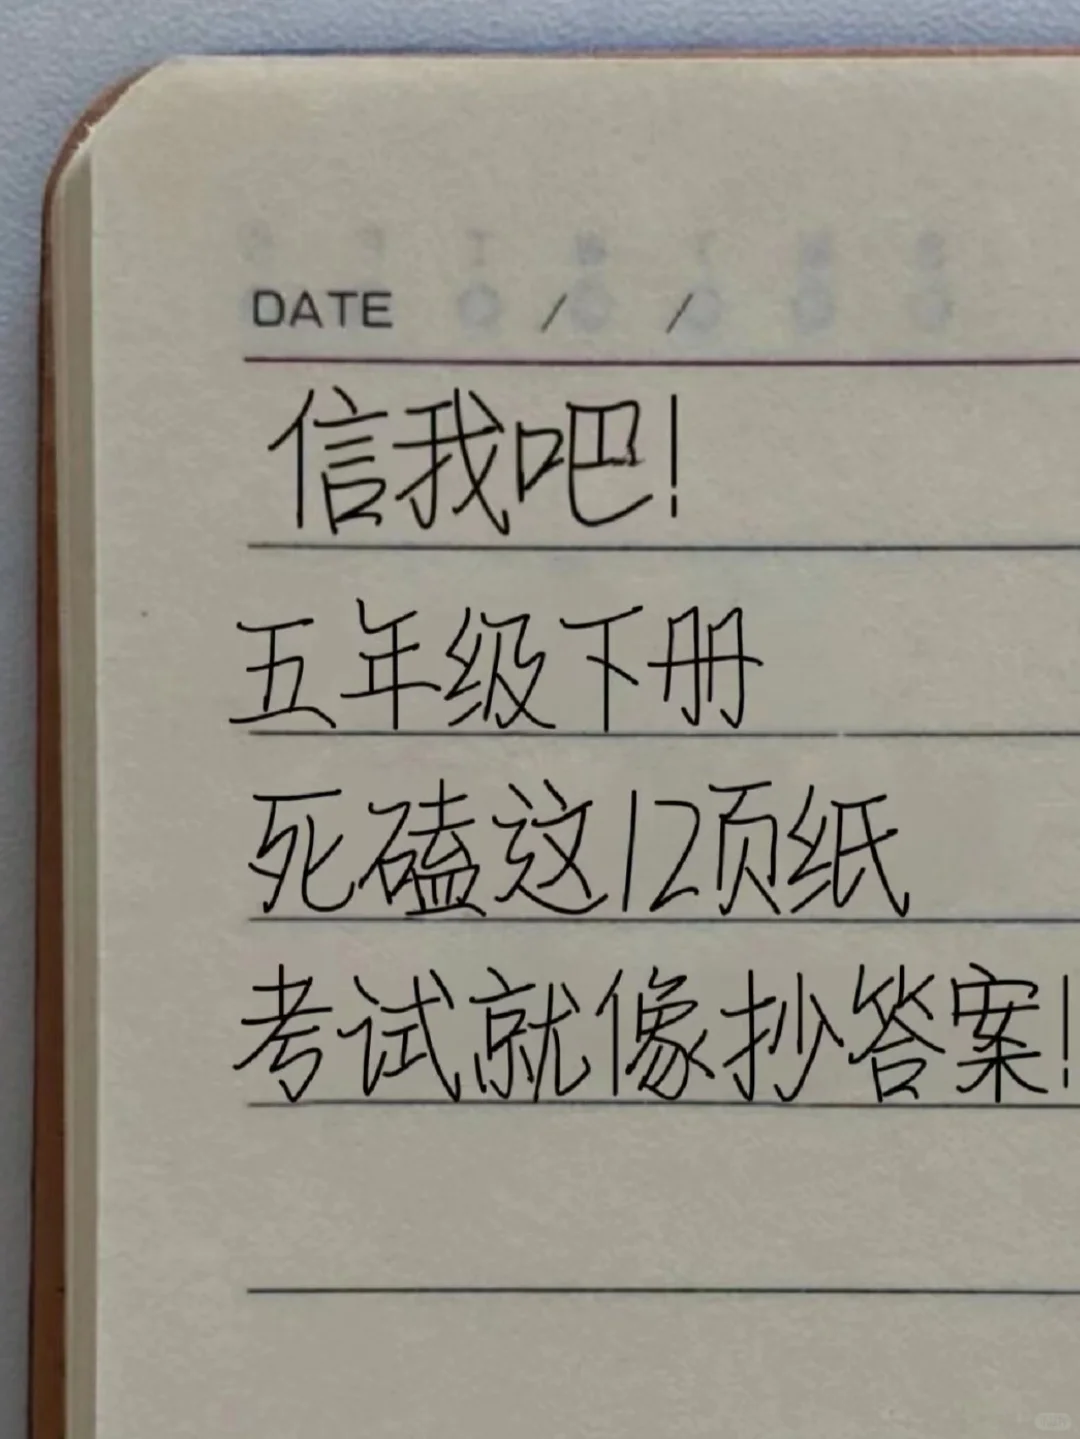 DATE / /
信我吧!
五年级下册
死磕这12页纸
考试就像抄答案!